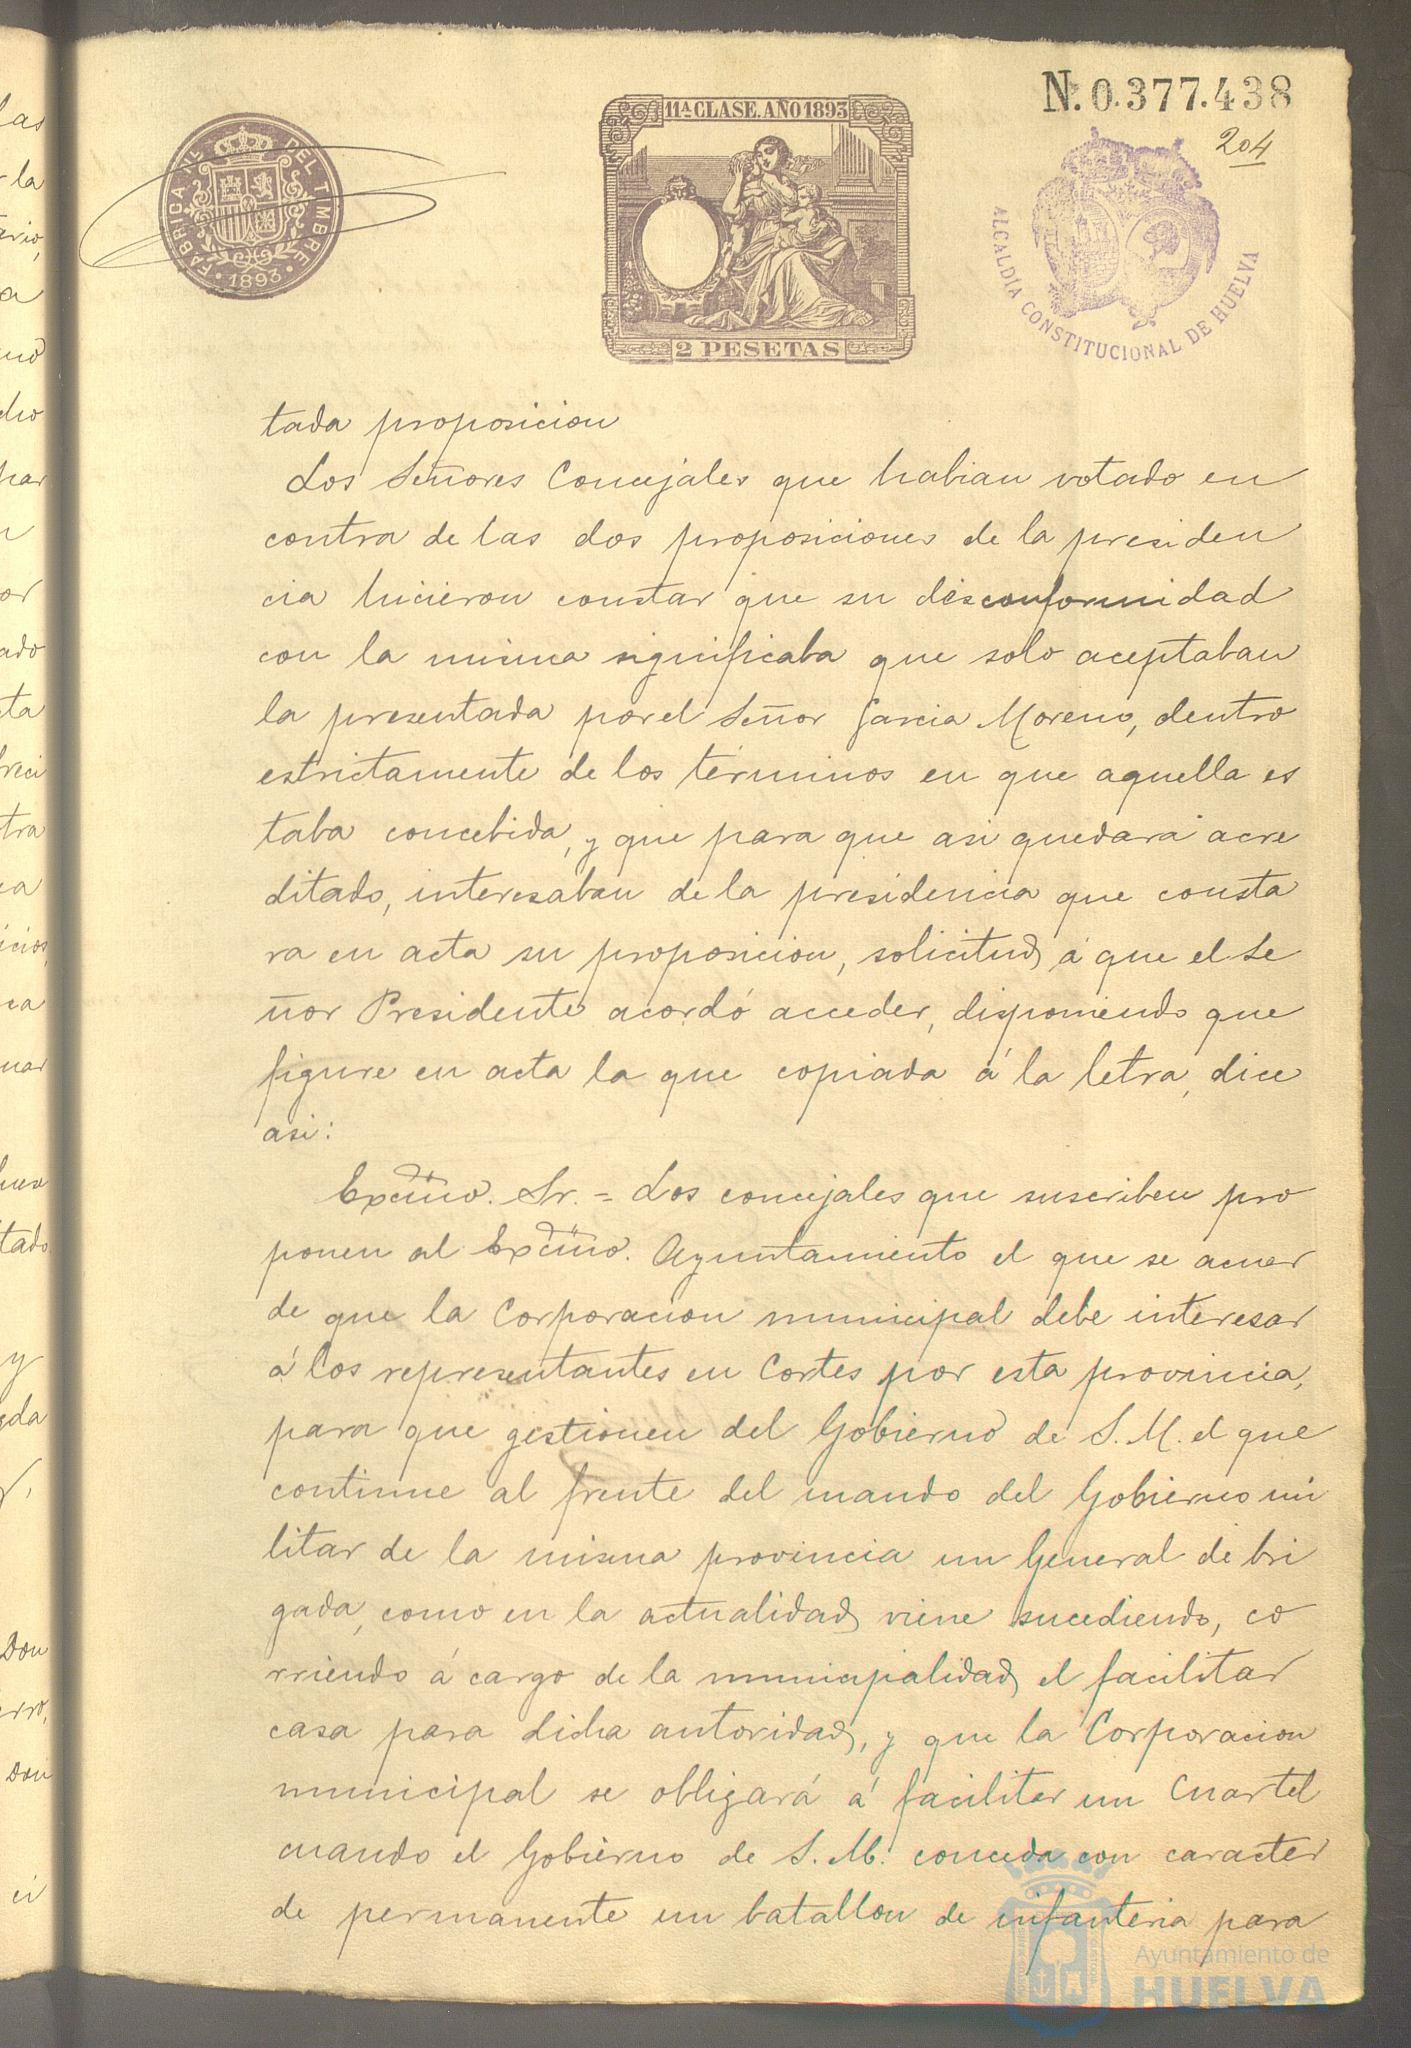 N.º 0.377.438
204
11ª CLASE. AÑO 1893
FABRICA NL DEL TIMBRE
· 1893 ·
2 PESETAS
ALCALDIA CONSTITUCIONAL DE HUELVA
tada proposicion
Los Señores Concejales que habian votado en
contra de las dos proposiciones de la presiden
cia hicieron constar que su desconformidad
con la misma significaba que solo aceptaban
la presentada por el Señor Garcia Moreno, dentro
estrictamente de los términos en que aquella es
taba concebida, y que para que asi quedará acre
ditado, interesaban de la presidencia que consta
ra en acta su proposicion, solicitud á que el Se
ñor Presidente acordó acceder, disponiendo que
figure en acta la que copiada á la letra, dice
asi:
Excmo. Sr. = Los concejales que suscriben pro
ponen al Excmo. Ayuntamiento el que se acuer
de que la Corporacion municipal debe interesar
á los representantes en Cortes por esta provincia,
para que gestionen del Gobierno de S. M. el que
continue al frente del mando del Gobierno mi
litar de la misma provincia un General de bri
gada, como en la actualidad viene sucediendo, co
rriendo á cargo de la municipalidad el facilitar
casa para dicha autoridad, y que la Corporacion
municipal se obligará á facilitar un Cuartel
cuando el Gobierno de S. M. conceda con caracter
de permanente un batallon de infanteria para
Ayuntamiento de
HUELVA